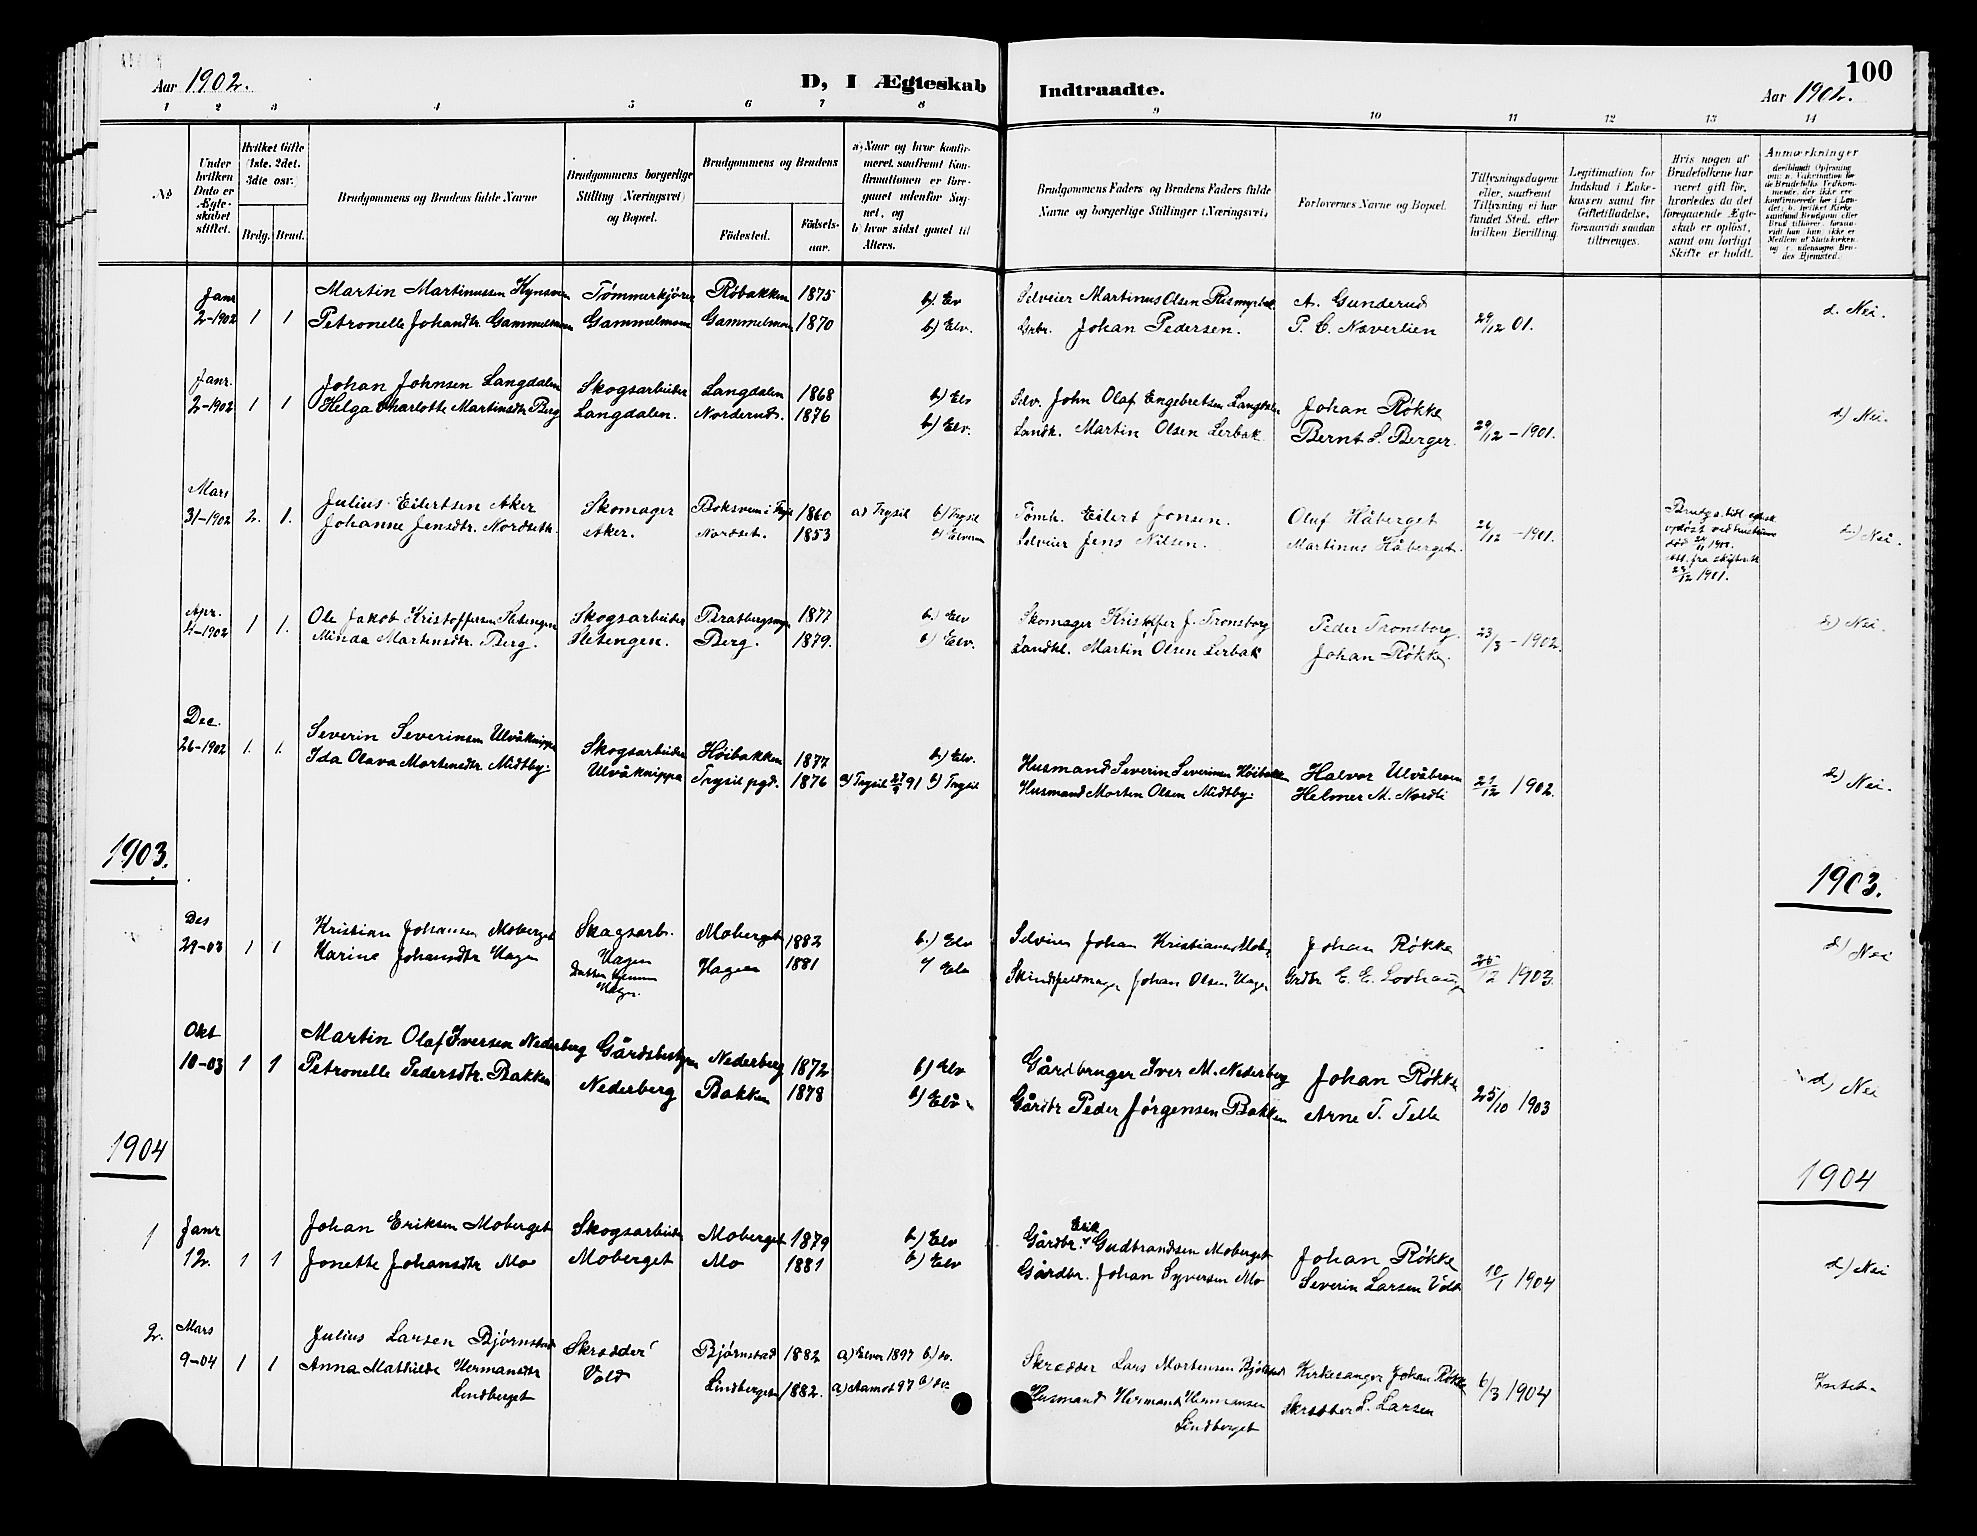 100
Aar 1902.
D, I Ægteskab Indtraadte.
Aar 1902.
1 2 3 4 5 6 7 8 9 10 11 12 13 14
No
Under hvilken Dato er Ægteskabet stiftet.
Hvilket Gifte (1ste, 2det, 3die osv.)
Brdg. Brud.
Brudgommens og Brudens fulde Navne
Brudgommens borgerlige Stilling (Næringsvei) og Bopæl.
Brudgommens og Brudens
Födested.
Födsels-aar.
a) Naar og hvor konfirmeret, saafremt Konfirmationen er foregaaet udenfor Sognet, og
b) hvor sidst gaaet til Alters.
Brudgommens Faders og Brudens Faders fulde Navne og borgerlige Stillinger (Næringsvei)
Forlovernes Navne og Bopæl.
Tillysningsdagene eller, saafremt Tillysning ei har fundet Sted, efter hvilken Bevilling
Legitimation for Indskud i Enkekassen samt for Giftetilladelse, forsaavidt saadan tiltrænges.
Hvis nogen af Brudefolkene har været gift för, hvorledes da det foregaaende Ægteskab er oplöst, samt om lovligt Skifte er holdt.
Anmærkninger
Janr 2-1902 1 1
Martin Martinussen Kynsveen Tømmerkjører Røbakken 1875 b) Elv Selveier Martinus Olsen Rismyrbak A. Gunderud
Petronelle Johandtr. Gammelmoen Gammelmoen Gammelmoen 1870 b) Elv. Grbr. Johan Pedersen. P. C. Næverlien 29/12 01. d. Nei.
Janr. 2-1902 1 1
Johan Johnsen Langdalen Skogsarbeider Langdalen 1868 b) Elv Selv. John Olaf Engebretsen Langdalen Johan Røkke
Helga Charlotte Martinsdtr Berg Langdalen. Norderud. 1876 b) Elv. Landh. Martin Olsen Lerbak Bernt S. Berger. 29/12 - 1901. d) Nei.
Mars 31-1902 2. 1.
Julius Eilertsen Aker Skomager Boksveen i Trysil 1860 a) Trysil b) Trysil Tømh. Eilert Jonsen. Oluf Håberget
Johanne Jensdtr. Nordseth Aker. Nordset. 1853 b) Elverum Selveier Jens Nilsen. Martinus Håberget. 26/12 - 1901. d.) Nei.
Apr. 4-1902 1 1.
Ole Jakob Kristoffersen Sletengen Skogsarbeider Bratbergsengen 1877 b.) Elv Skomager Kristoffer J. Tronsborg Peder Tronsborg.
Minda Martinsdtr. Berg. Sletengen. Berg. 1879. b) Elv. Landhl. Martin Olsen Lerbak Johan Røkke. 23/3 - 1902. d) Nei.
Dec. 26-1902 1. 1.
Severin Severinsen Ulvåknippa Skogsarbeider Høibakken 1877 b) Elv. Husmand Severin Severinsen Høibakken Halvor Ulvåbroen
Ida Olava Mortensdtr Midtby. Ulvåknippa Trysil pgd. 1876 b) Trysil Husmand Morten Olsen Midtby. Helmer M. Nordli 1902. d) Nei.
1903. 1903.
Des 29-03 1 1
Kristian Johansen Moberget Skogsarb. Moberget 1882 b.) Elv Johan Kristiansen Johan Røkke
Karine Johansdtr Hagen Hagen Hagen 1881 Elv Skindfeldmager Johan Olsen Hagen Grdbr E. E. Lovhaugen 26/12 1903. d) Nei
Okt 10-03 1 1
Martin Olaf Iversen Nederberg Gårdsbestyrer Nederberg 1872 b) Elv Gårdbruger Iver M. Nederberg Johan Røkke
Petronelle Pedersdtr. Bakken Nederberg Bakken 1878 b) Elv. Gårdbr Peder Jørgensen Bakken Arne T. Telle 25/10 1903 d) Nei
1904 1904
1 Janr 12. 1 1
Johan Eriksen Moberget Skogsarbeider Moberget 1879 b) Elv Gårdbr. Erik Gudbrandsen Moberget Johan Røkke
Jonette Johansdtr Mo Moberget Mo 1881 b) Elv Gårdbr. Johan Syversen Mo Severin Larsen Vold 10/1 1904 d) Nei
2. Mars 9-04 1 1
Julius Larsen Bjørnstad Skrædder Bjørnstad 1882 a) Elver 1897 b) do. Skrædder Lars Mortensen Kirkesanger Johan Røkke
Anna Mathilde Hermansdtr Lindberget Vold Lindberget 1882. a) Aamot 97 b) do. Husmand Hermand Hermansen Lindberget Skrædder L. Larsen 6/3 1904 Intet.